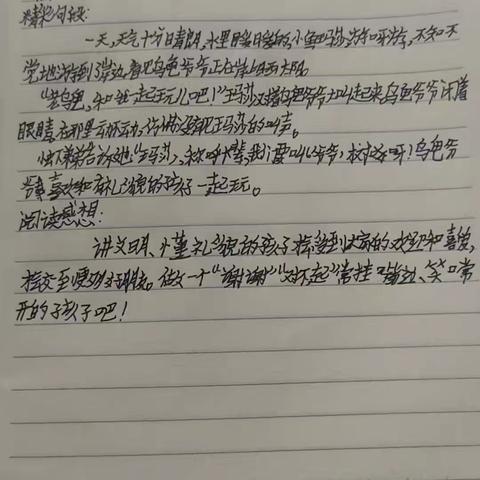 精彩句段:
一天,天气十分晴朗,水里暖暖的,小鱼玛莎游呀游,不知不
觉地游到了岸边,看见乌龟爷爷正在岸上晒太阳。
"老乌龟,和我一起玩儿吧!"玛莎对着乌龟爷爷大叫起来,乌龟爷爷闭着
眼睛,在那里一动不动,仿佛没听见玛莎的叫声。
虾弟弟告诉她:"玛莎,称呼长辈,我们要叫爷爷,校好呀!乌龟爷
爷喜欢和有礼貌的孩子一起玩。
阅读感想:
讲文明、懂礼貌的孩子能受到大家的欢迎和喜爱,
能交至更多好朋友。做一个"谢谢""对不起"常挂嘴边、笑口常
开的孩子吧!